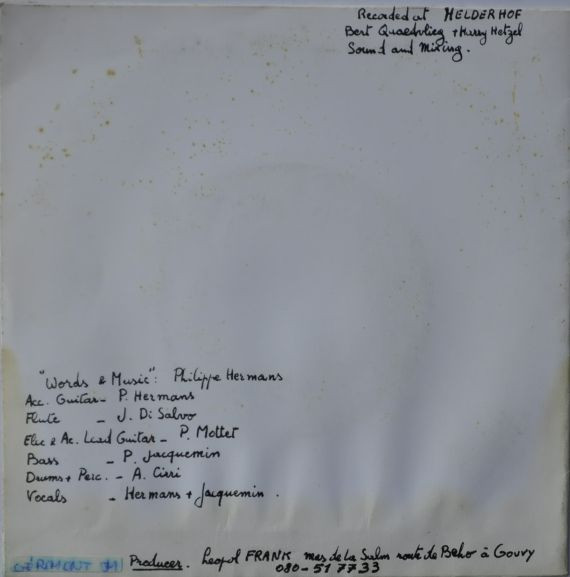 Recorded at HELDERHOF
Bert Quaedvlieg + Harry Hetzel
Sound and Mixing.
"Words & Music": Philippe Hermans
Acc. Guitar - P. Hermans
Flute - J. Di Salvo
Elec & Ac. Lead Guitar - P. Mottet
Bass - P. Jacquemin
Drums + Perc. - A. Cirri
Vocals - Hermans + Jacquemin.
GÉRIMONT M Producer. Leopol FRANK mas de la Sulm route de Beho à Gouvy
080-517733